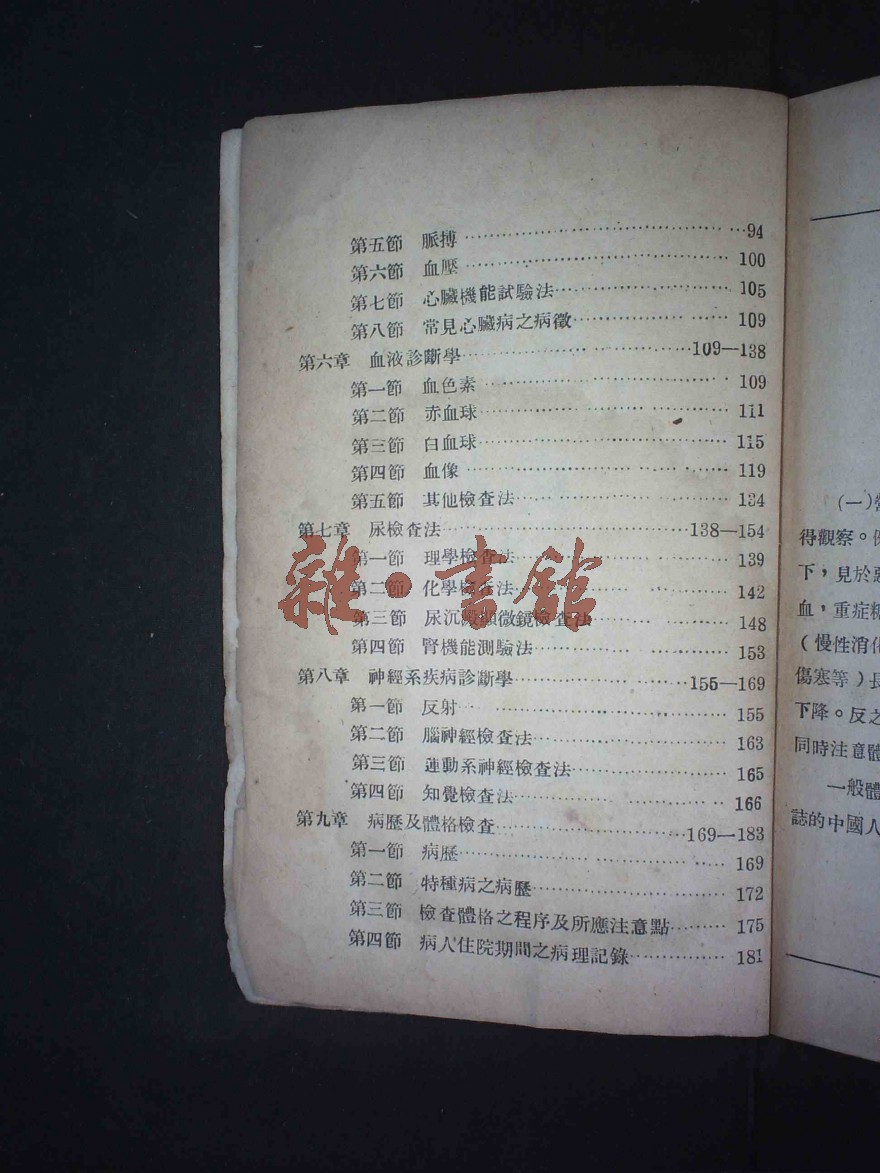 第五節 脈搏……94
第六節 血壓……100
第七節 心臟機能試驗法……105
第八節 常見心臟病之病徵……109
第六章 血液診斷學……109—138
第一節 血色素……109
第二節 赤血球……111
第三節 白血球……115
第四節 血像……119
第五節 其他檢查法……134
第七章 尿檢查法……138—154
第一節 理學檢查法……139
第二節 化學檢查法……142
第三節 尿沉澱顯微鏡檢查法……148
第四節 腎機能測驗法……153
第八章 神經系疾病診斷學……155—169
第一節 反射……155
第二節 腦神經檢查法……163
第三節 運動系神經檢查法……165
第四節 知覺檢查法……166
第九章 病歷及體格檢查……169—183
第一節 病歷……169
第二節 特種病之病歷……172
第三節 檢查體格之程序及所應注意點……175
第四節 病人住院期間之病理記錄……181
雜·書館
(一)
得觀察。
下，見於惡
血，重症糖
（慢性消化
傷寒等）長
下降。反之
同時注意體
一般體
誌的中國人